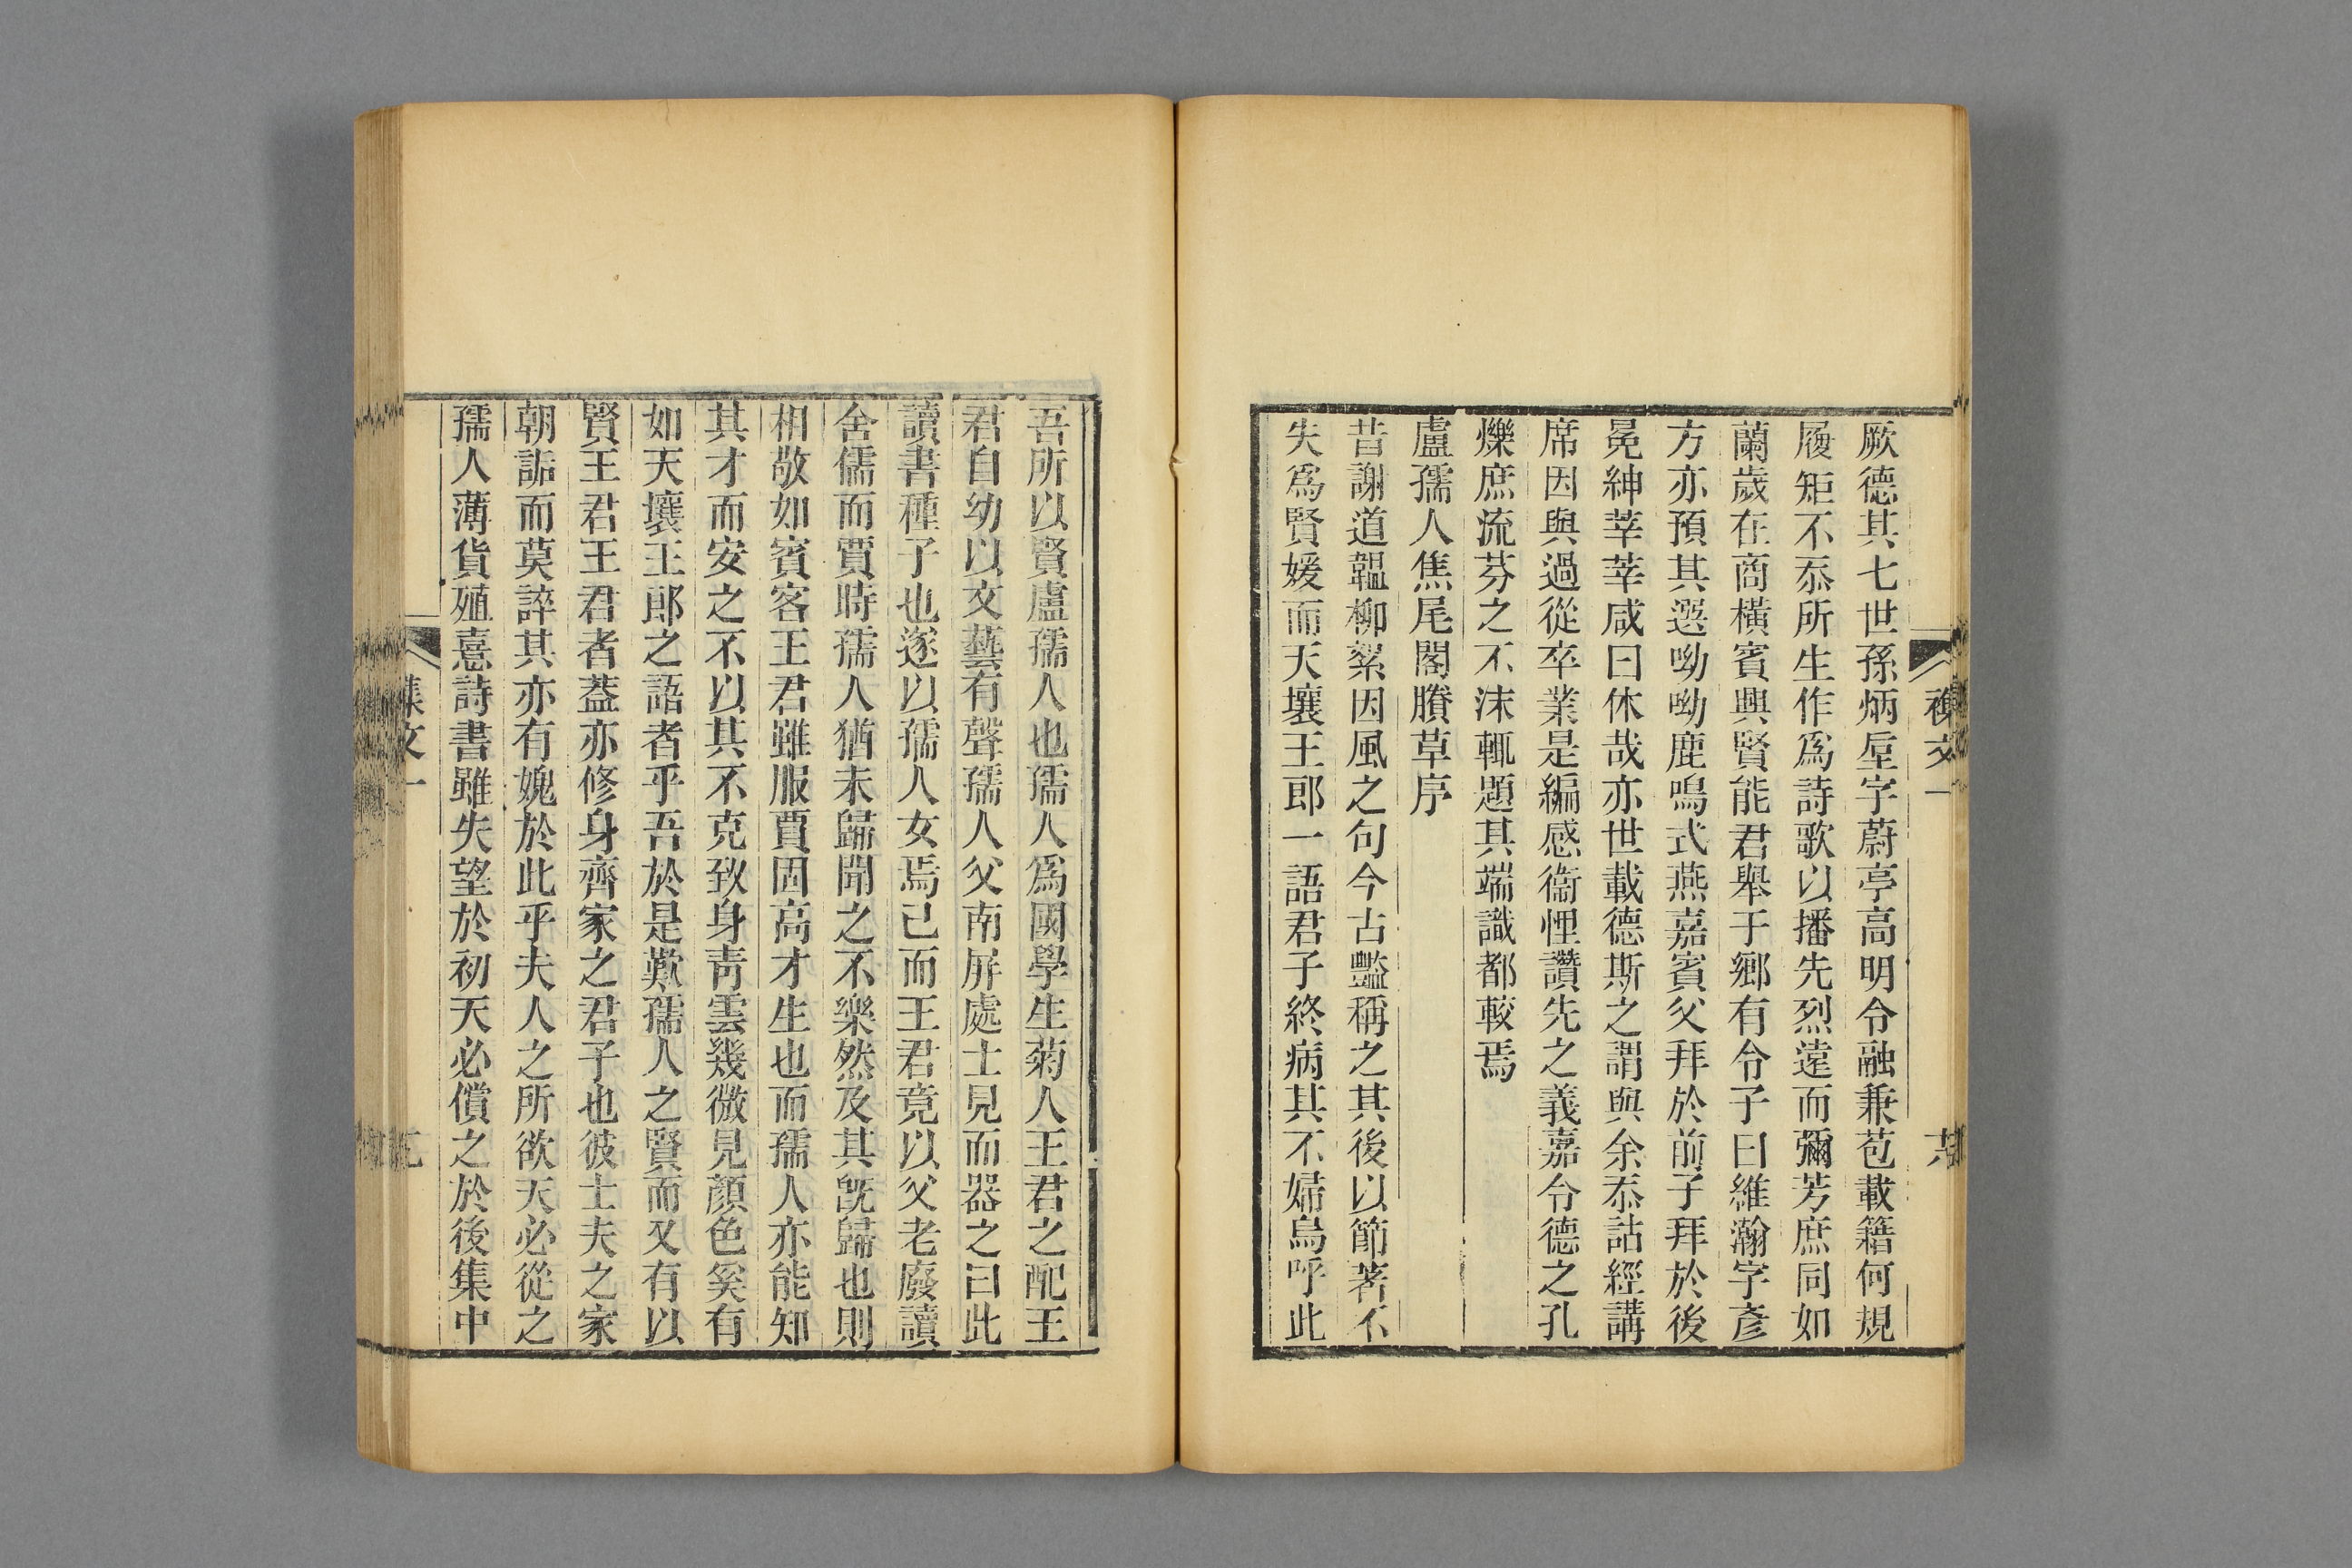 厥德其七世孫炳垕字蔚亭高明令融兼苞載籍何規
履矩不忝所生作爲詩歌以播先烈遠而彌芳庶同如
蘭歲在商橫賓興賢能君舉于鄉有令子曰維瀚字彥
方亦預其選呦呦鹿鳴式燕嘉賓父拜於前子拜於後
冕紳莘莘咸曰休哉亦世載德斯之謂與余忝詁經講
席因與過從卒業是編感衞悝讚先之義嘉令德之孔
爍庶流芬之不沬輒題其端識都較焉
盧孺人焦尾閣賸草序
昔謝道韞柳絮因風之句今古豔稱之其後以節著不
失爲賢媛而天壤王郎一語君子終病其不婦烏呼此
吾所以賢盧孺人也孺人爲國學生菊人王君之配王
君自幼以文藝有聲孺人父南屏處士見而器之曰此
讀書種子也遂以孺人女焉已而王君竟以父老廢讀
舍儒而賈時孺人猶未歸聞之不樂然及其旣歸也則
相敬如賓客王君雖服賈固高才生也而孺人亦能知
其才而安之不以其不克致身靑雲幾微見顏色奚有
如天壤王郎之語者乎吾於是歎孺人之賢而又有以
賢王君王君者葢亦修身齊家之君子也彼士夫之家
朝詬而莫誶其亦有媿於此乎夫人之所欲天必從之
孺人薄貨殖憙詩書雖失望於初天必償之於後集中